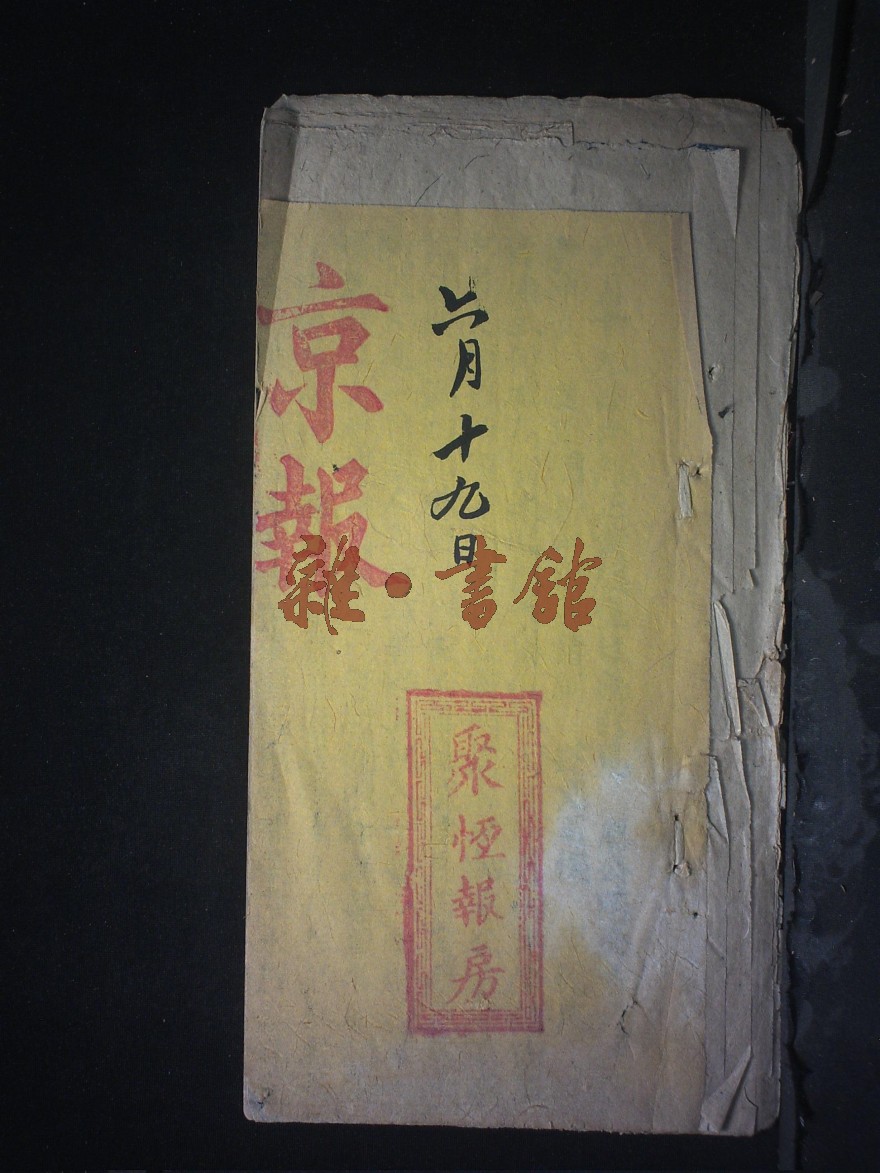 京報
六月十九日
聚恆報房
雜·書館